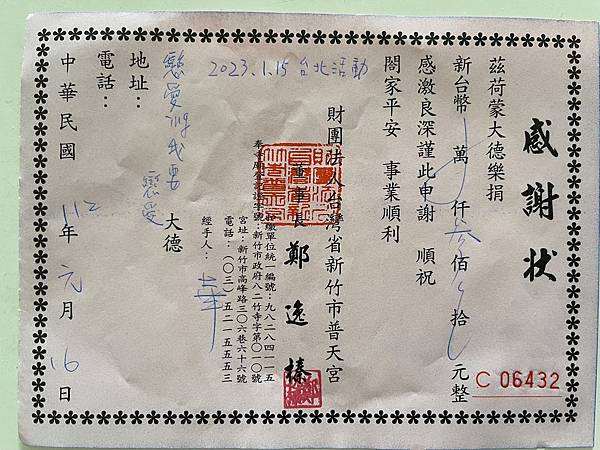 感謝狀
茲荷蒙大德樂捐
新台幣 萬 仟叁佰 拾 元整
感激良深謹此申謝 順祝
閤家平安 事業順利
財團法人台灣省新竹市普天宮
董事長 鄭逸榛
扣繳單位統一編號:九八二八四一一五
泰寺廟登記證字號:新竹市政府八二竹寺字第〇一〇號
宮址:新竹市高峰路三〇六巷六十六號
電話:(〇三)五二一五五五三
經手人: 華
2023.1.15 台北活動
大德
地址:
電話:
中華民國 112 年 元 月 16 日
C 06432